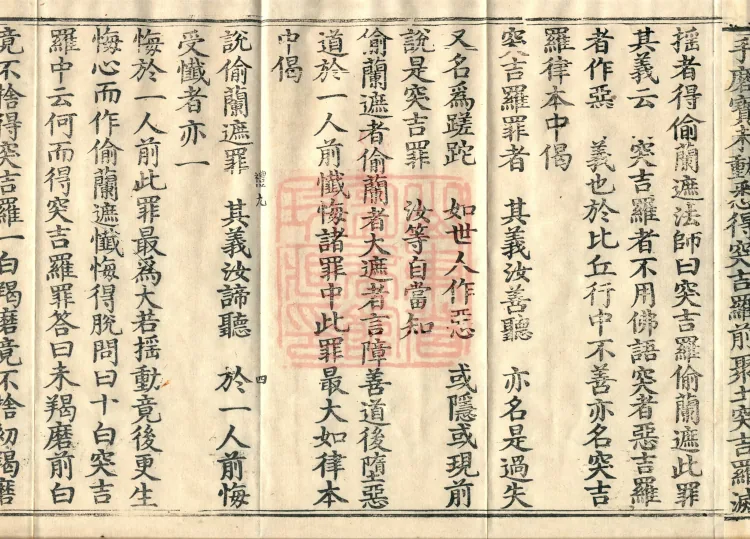 手磨寶未動悉得突吉羅前聚土突吉羅滅
搖者得偷蘭遮法師曰突吉羅偷蘭遮此罪
其義云　突吉羅者不用佛語突者惡吉羅
者作惡　義也於比丘行中不善亦名突吉
羅律本中偈
突吉羅罪者　其義汝善聽　亦名是過失
又名為蹉跎　如世人作惡　或隱或現前
說是突吉罪　汝等自當知
偷蘭遮者偷蘭者大遮者言障善道後墮惡
道於一人前懺悔諸罪中此罪最大如律本
中偈
禮九　四
說偷蘭遮罪　其義汝諦聽　於一人前悔
受懺者亦一
悔於一人前此罪最為大若搖動竟後更生
悔心而作偷蘭遮懺悔得脫問曰十白突吉
羅中云何而得突吉羅罪答曰未羯磨前白
竟不捨得突吉羅一白羯磨竟不捨初羯磨